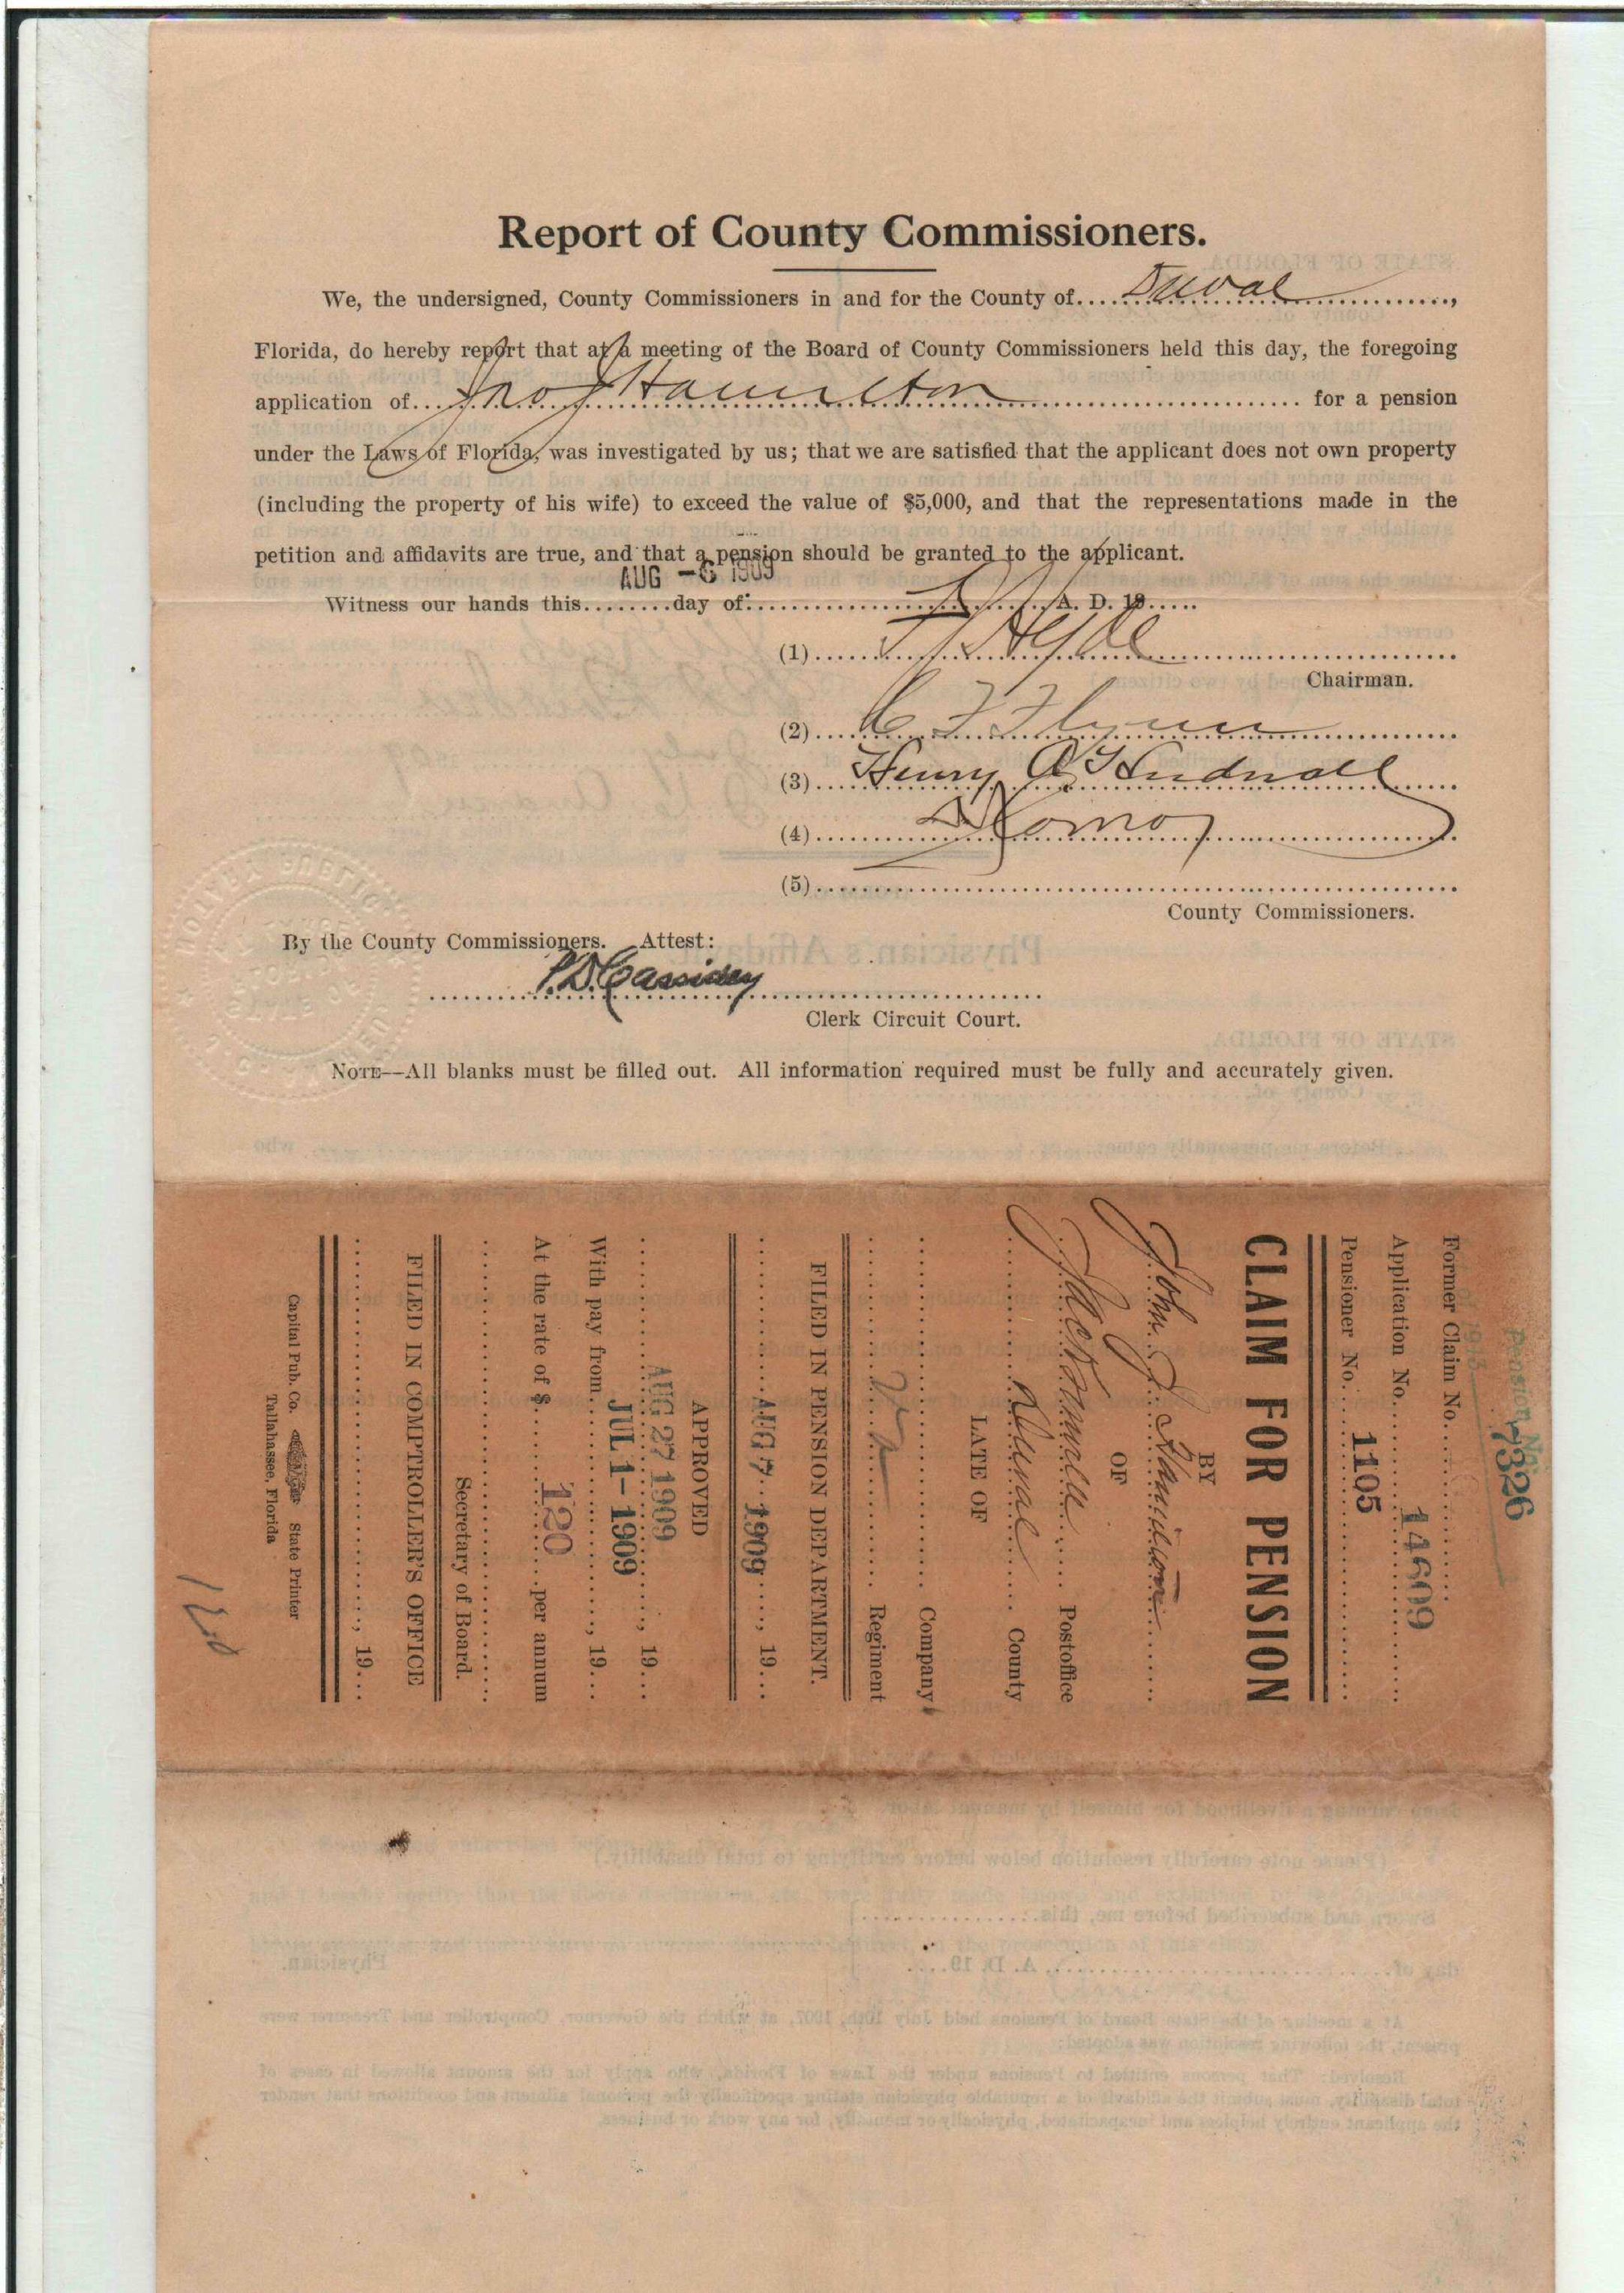 Report of County Commissioners.
We, the undersigned, County Commissioners in and for the County of....Duval....,
Florida, do hereby report that at a meeting of the Board of County Commissioners held this day, the foregoing
application of....Jno J Hamilton.... for a pension
under the Laws of Florida, was investigated by us; that we are satisfied that the applicant does not own property
(including the property of his wife) to exceed the value of $5,000, and that the representations made in the
petition and affidavits are true, and that a pension should be granted to the applicant.
AUG -6 1909
Witness our hands this........day of:....................A. D. 19.....
(1)
Chairman.
(2) C F Flynn
(3) Henry A Hudnall
(4)
(5)
County Commissioners.
By the County Commissioners. Attest:
P. D. Cassidey
Clerk Circuit Court.
NOTE--All blanks must be filled out. All information required must be fully and accurately given.
Pension No.
7326
Former Claim No.
Application No. 14609
Pensioner No. 1105
CLAIM FOR PENSION
BY
John J. Hamilton
OF
Jacksonville Postoffice
Duval County
LATE OF
Company
Regiment
FILED IN PENSION DEPARTMENT.
AUG 7 1909, 19...
APPROVED
AUG 27 1909, 19...
With pay from JUL 1- 1909, 19...
At the rate of $ 120 per annum
Secretary of Board.
FILED IN COMPTROLLER'S OFFICE
, 19...
Capital Pub. Co. State Printer
Tallahassee, Florida